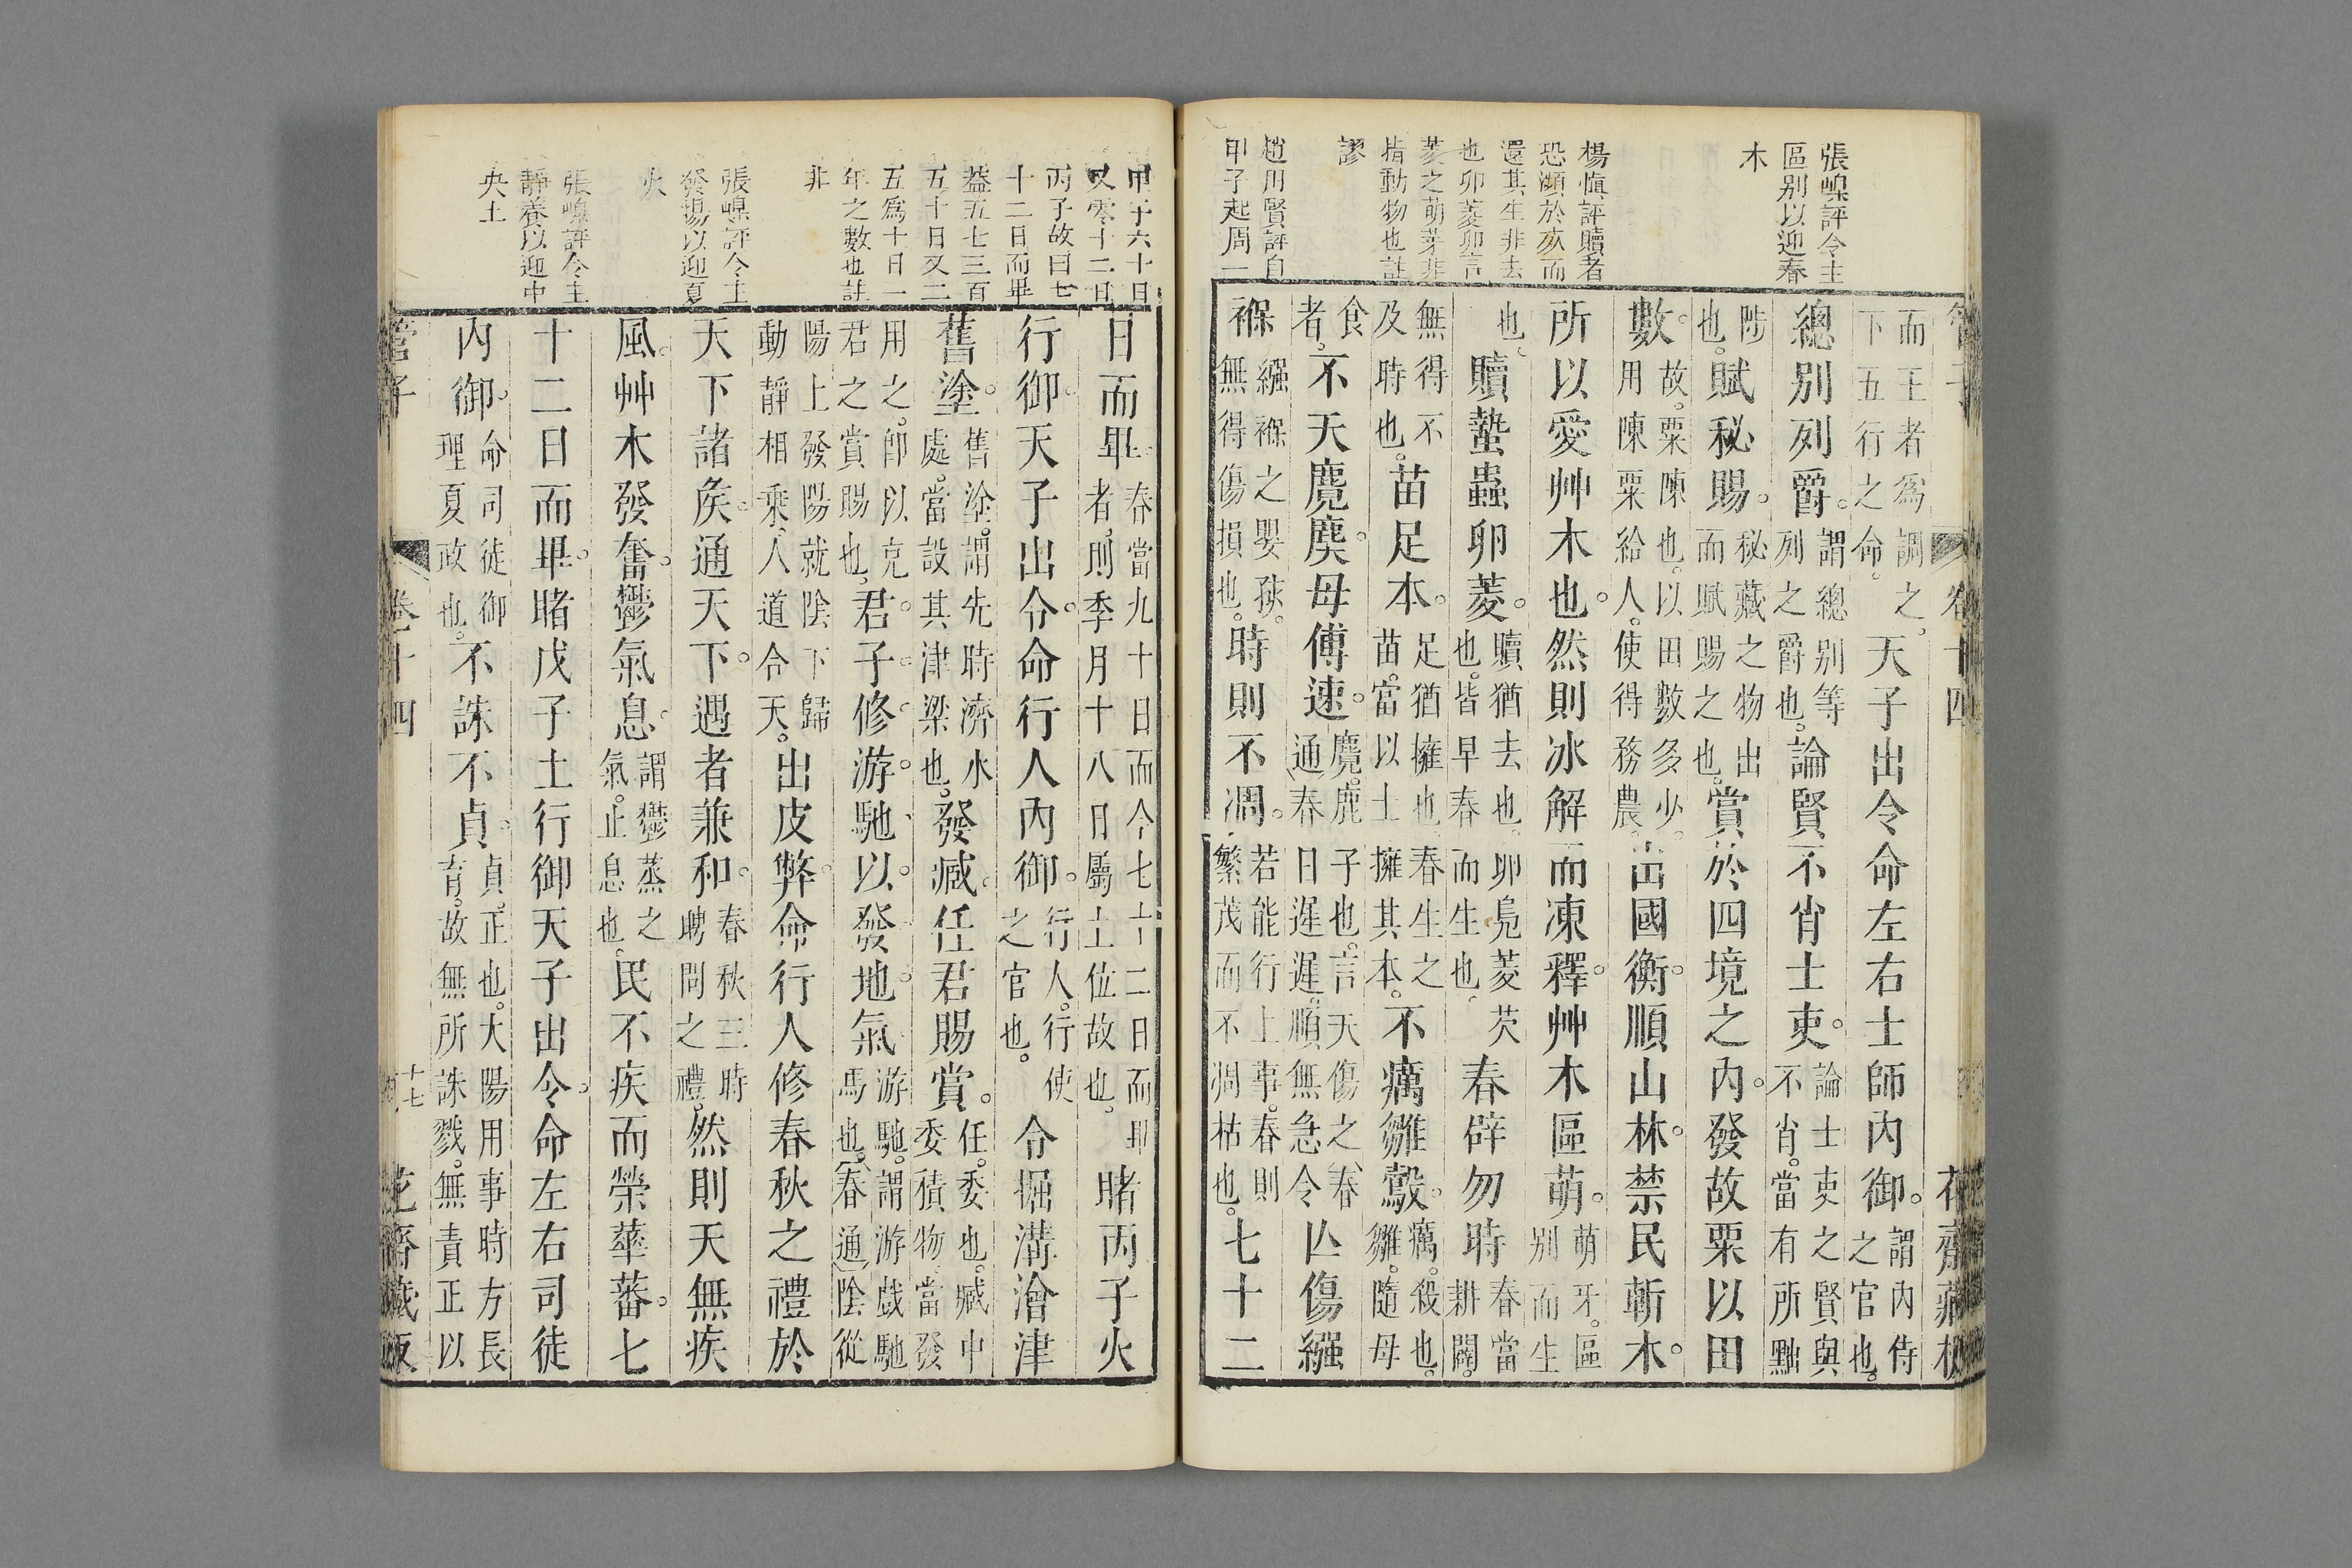 張嵲評令主
區別以迎春
木
楊慎評贖者
恐瀕於亥而
還其生非去
也卯菱卯言
菱之萌芽非
指動物也註
謬
趙用賢評自
甲子起周一
管子 卷十四 花齋藏板
而王者為調之,下五行之命。天子出令命左右士師內御。謂內侍之官也。
總別列爵。謂總別等列之爵也。論賢不肖士吏。論士吏之賢與不肖。當有所黜
陟也。賦秘賜。秘藏之物出而賦賜之也。賞於四境之內。發故粟以田
數。故。粟陳也。以田數多少。用陳粟給人。使得務農。出國衡。順山林。禁民斬木。
所以愛艸木也。然則冰解而凍釋。艸木區萌。萌牙。區別而生
也。贖蟄蟲卵菱。贖猶去也。卵鳧菱芡也。皆早春而生也。春辟勿時春當耕闢。
無得不及時也。苗足本。足猶擁也。春生之苗。當以土擁其本。不癘雛鷇。癘。殺也。雛。隨母
食者。不夭麑麌。母傅速。麑。鹿子也。言夭傷之(春通)春日遲遲。順無急令亾傷繈
褓繈褓之嬰孩。無得傷損也。時則不凋。若能行上事。春則繁茂而不凋枯也。七十二
甲子六十日
又零十二日
丙子故曰七
十二日而畢
葢五七三百
五十日又二
五為十日一
年之數也註
非
張嵲評令主
發揚以迎夏
火
張嵲評令主
靜養以迎中
央土
日而畢。春當九十日而今七十二日而畢者。則季月十八日屬土位故也。睹丙子火
行御。天子出令。命行人內御。行人。行使之官也。令掘溝澮津
舊塗。舊塗。謂先時濟水處。當設其津梁也。發臧。任君賜賞。任。委也。臧中委積物當發
用之。卽以充君之賞賜也。君子修游馳。以發地氣。游馳。謂游戲馳馬也。(春通)陰從
陽上發陽就陰下歸動靜相乘。人道合天。出皮弊。命行人修春秋之禮於
天下諸矦。通天下。遇者兼和。春秋三時聘問之禮。然則天無疾
風。艸木發奮。鬱氣息。謂鬱蒸之氣。止息也。民不疾而榮華蕃。七
十二日而畢。睹戊子土行御天子出令。命左右司徒
內御。命司徒御理夏政也。不誅不貞。貞。正也。大陽用事時方長育。故無所誅戮。無責正以
管子 卷十四 十七 花齋藏板